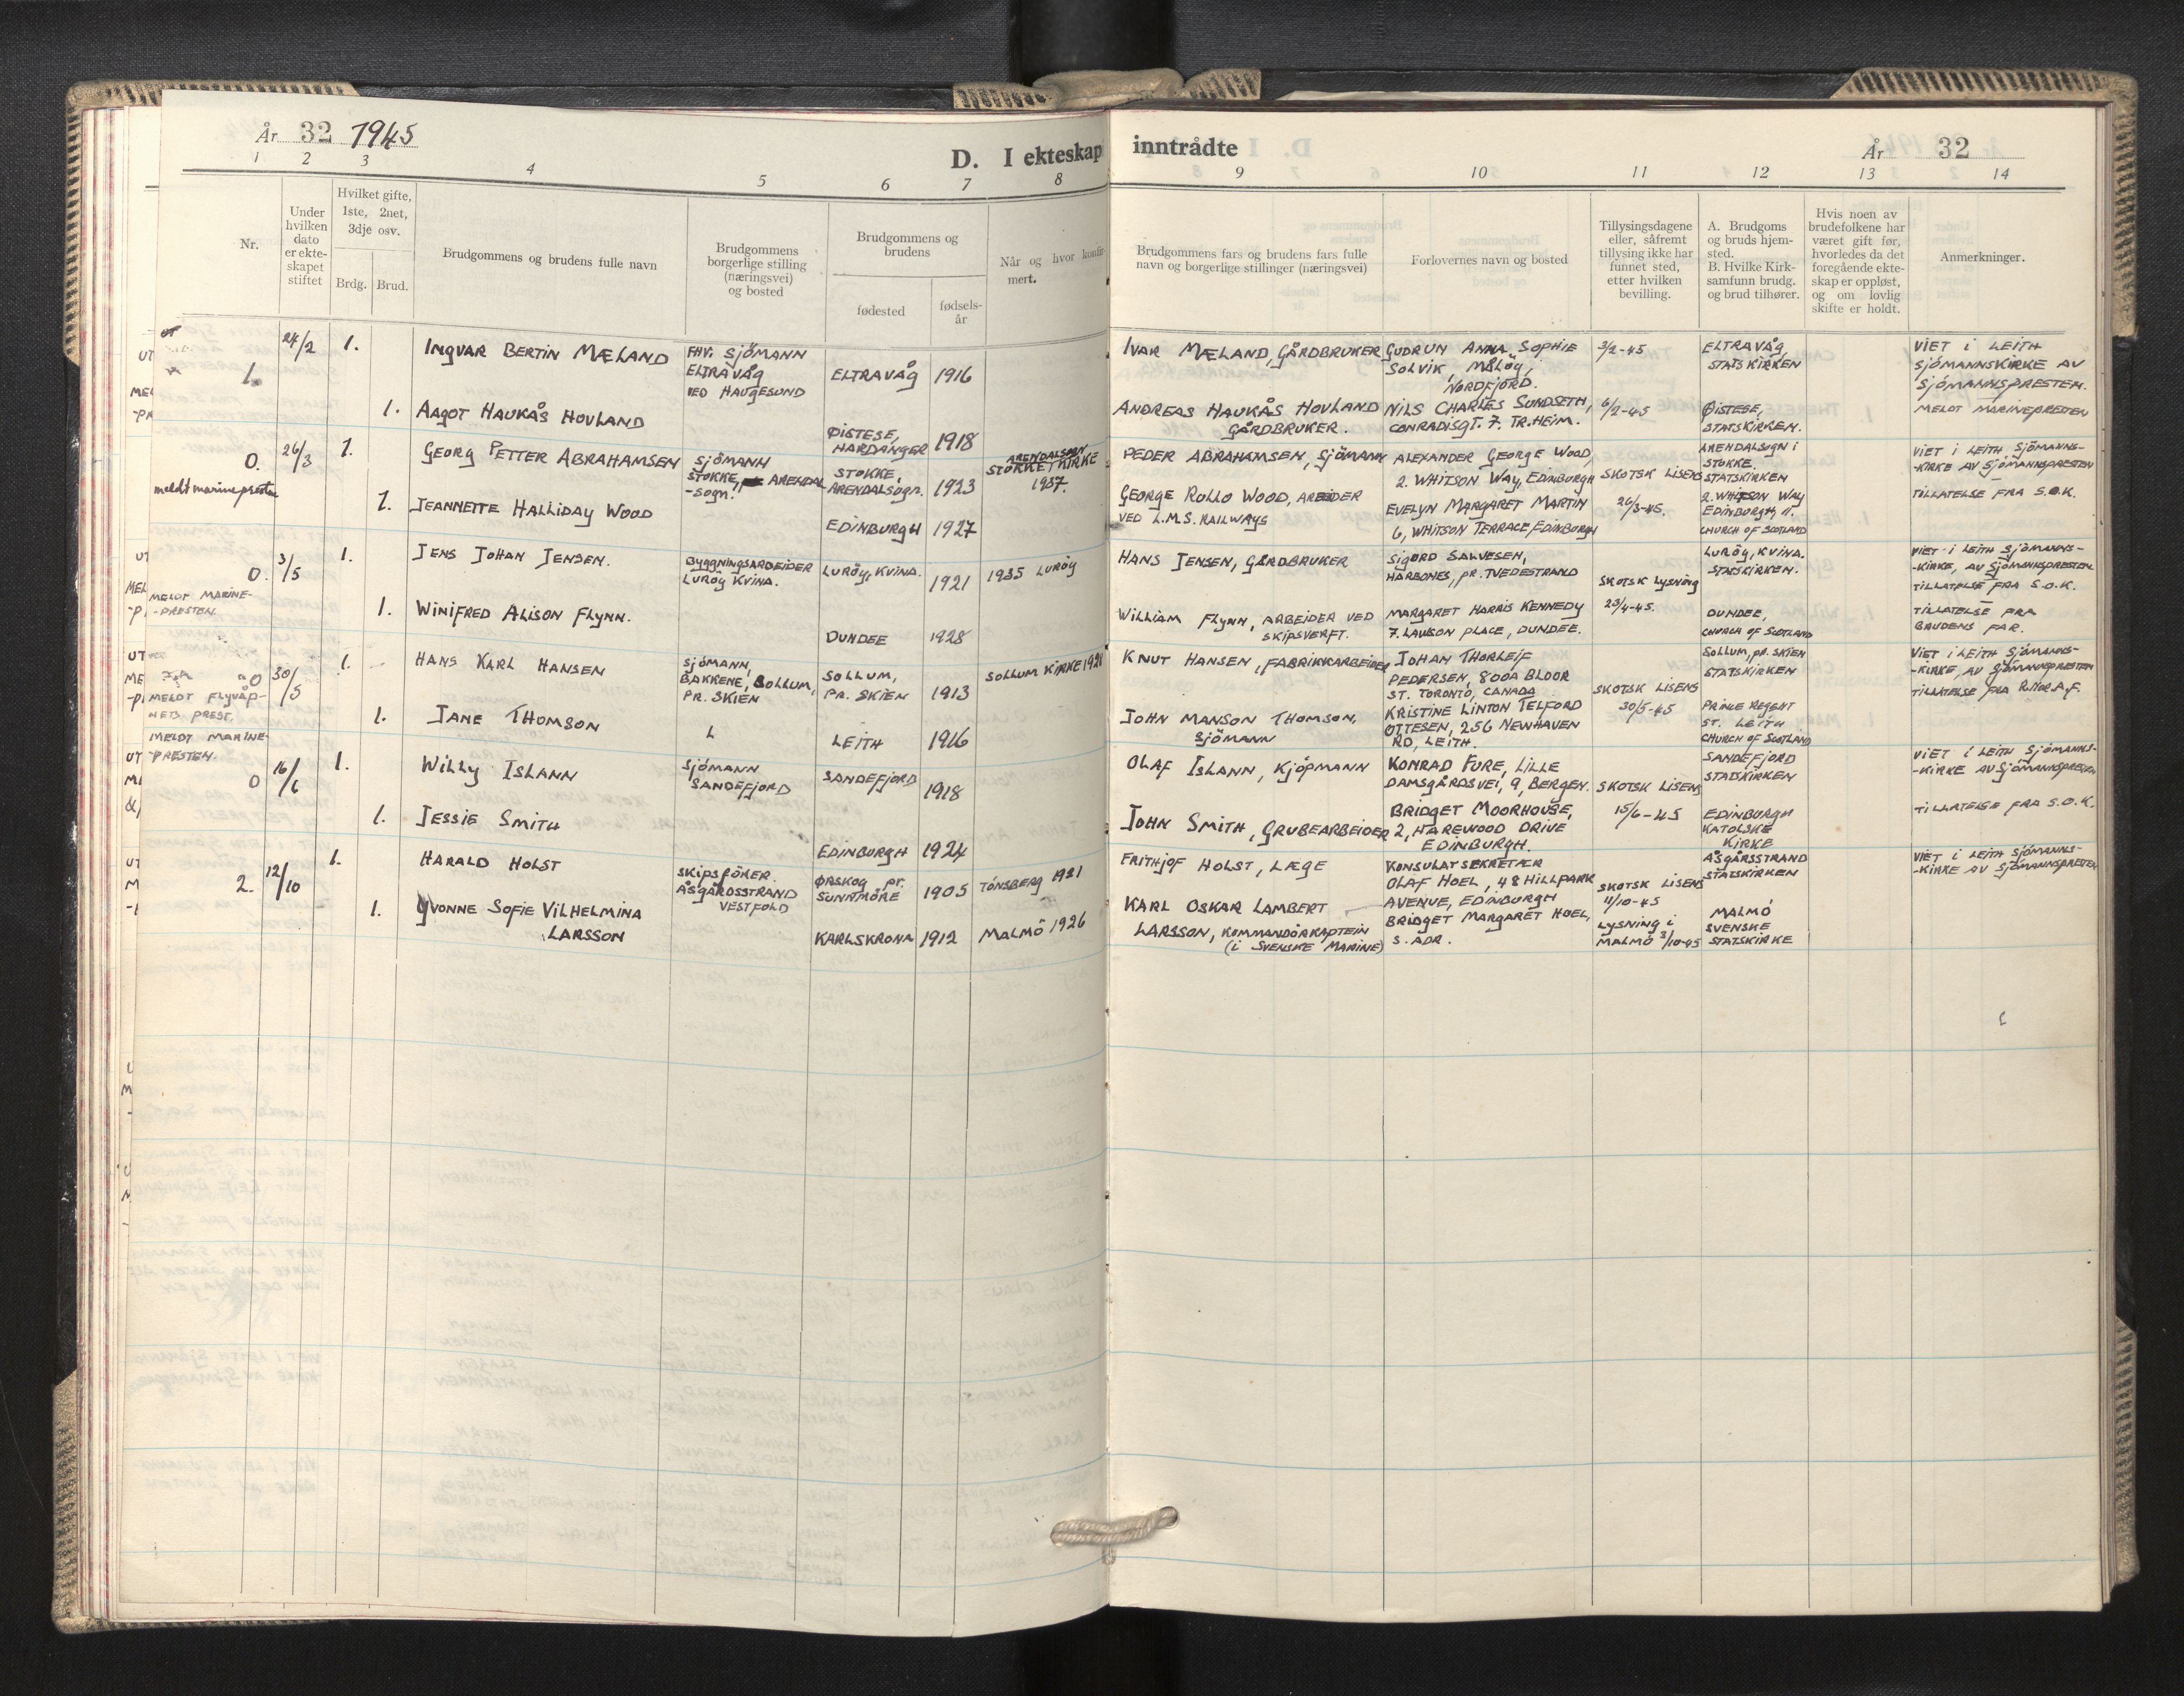 År 32 1945
D. I ekteskap inntrådte
År 32
1 2 3 4 5 6 7 8 9 10 11 12 13 14
Nr.
Under hvilken dato er ekte- skapet stiftet
Hvilket gifte, 1ste, 2net, 3dje osv.
Brdg. Brud.
Brudgommens og brudens fulle navn
Brudgommens borgerlige stilling (næringsvei) og bosted
Brudgommens og brudens
fødested
fødsels- år
Når og hvor konfir mert.
Brudgommens fars og brudens fars fulle navn og borgerlige stillinger (næringsvei)
Forlovernes navn og bosted
Tillysingsdagene eller, såfremt tillysing ikke har funnet sted, etter hvilken bevilling.
A. Brudgoms og bruds hjem- sted.
B. Hvilke Kirk- samfunn brudg. og brud tilhører.
Hvis noen av brudefolkene har været gift før, hvorledes da det foregående ekte- skap er oppløst, og om lovlig skifte er holdt.
Anmerkninger.
1. 24/2 1.
INGVAR BERTIN MÆLAND
FHV. SJÖMANN
ELTRAVÅG
VED HAUGESUND
ELTRAVÅG 1916
IVAR MÆLAND, GÅRDBRUKER
GUDRUN ANNA SOPHIE
SOLVIK, MÅLÖY,
NORDFJORD.
3/2-45
ELTRAVÅG
STATSKIRKEN
VIET I LEITH
SJÖMANNSKIRKE AV
SJÖMANNSPRESTEN.
1. AAGOT HAUKÅS HOVLAND
ØISTESE,
HARDANGER 1918
ANDREAS HAUKÅS HOVLAND
GÅRDBRUKER.
NILS CHARLES SUNDSETH,
CONRADISGT. 7. TR.HEIM.
6/2-45
ØISTESE,
STATSKIRKEN.
MELDT MARINEPRESTEN
0. 26/3 1.
GEORG PETTER ABRAHAMSEN
SJÖMANN
STOKKE, ARENDAL
-SOGN.
STOKKE,
ARENDALSOGN. 1923
ARENDALSOGN
STOKKE KIRKE
1937.
PEDER ABRAHAMSEN, SJÖMANN
ALEXANDER GEORGE WOOD,
2. WHITSON WAY, EDINBURGH
SKOTSK LISENS
26/3-45.
ARENDALSOGN I
STOKKE.
STATSKIRKEN
VIET I LEITH SJÖMANNS-
-KIRKE AV SJÖMANNSPRESTEN
TILLATELSE FRA S.O.K.
meldt marinepresten
1. JEANNETTE HALLIDAY WOOD
EDINBURGH 1927
GEORGE ROLLO WOOD, ARBEIDER
VED L.M.S. RAILWAYS
EVELYN MARGARET MARTIN
6, WHITSON TERRACE, EDINBURGH
2. WHITSON WAY
EDINBURGH, 11.
CHURCH OF SCOTLAND
0. 3/5 1.
JENS JOHAN JENSEN.
BYGGNINGSARBEIDER
LURÖY KVINA.
LURÖY, KVINA. 1921
1935 LURÖY
HANS JENSEN, GÅRDBRUKER
SIGURD SALVESEN,
HARBONES, PR. TVEDESTRAND
SKOTSK LYSNING
23/4-45.
LURÖY, KVINA.
STATSKIRKEN.
VIET I LEITH SJÖMANNS-
-KIRKE, AV SJÖMANNSPRESTEN
TILLATELSE FRA S.O.K.
MELDT MARINE-
-PRESTEN.
1. WINIFRED ALISON FLYNN.
DUNDEE 1928
WILLIAM FLYNN, ARBEIDER VED
SKIPSVERFT.
MARGARET HARRIS KENNEDY
7. LAWSON PLACE, DUNDEE.
DUNDEE,
CHURCH OF SCOTLAND
TILLATELSE FRA
BRUDENS FAR.
0 30/5 1.
HANS KARL HANSEN
SJÖMANN,
BAKKENE, SOLLUM,
PR. SKIEN
SOLLUM,
PR. SKIEN 1913
SOLLUM KIRKE 1928
KNUT HANSEN, FABRIKKARBEIDER
JOHAN THORLEIF
PEDERSEN, 800A BLOOR
ST. TORONTO, CANADA
SKOTSK LISENS
30/5-45
SOLLUM, PR. SKIEN
STATSKIRKEN
VIET I LEITH SJÖMANNS-
-KIRKE, AV SJÖMANNSPRESTEN
TILLATELSE FRA R.NOR.A.F.
MELDT FLYVÅP-
NETS PREST.
1. JANE THOMSON
LEITH 1916
JOHN MANSON THOMSON,
SJÖMANN
KRISTINE LINTON TELFORD
OTTESEN, 256 NEWHAVEN
RD, LEITH.
PRINCE REGENT
ST. LEITH
CHURCH OF SCOTLAND
MELDT MARINE-
-PRESTEN.
0 16/6 1.
WILLY ISLANN
SJÖMANN
SANDEFJORD
SANDEFJORD 1918
OLAF ISLANN, KJÖPMANN
KONRAD FURE, LILLE
DAMSGÅRDSVEI, 9, BERGEN.
SKOTSK LISENS
15/6-45
SANDEFJORD
STATSKIRKEN
VIET I LEITH SJÖMANNS-
-KIRKE AV SJÖMANNSPRESTEN
TILLATELSE FRA S.O.K.
1. JESSIE SMITH
EDINBURGH 1924
JOHN SMITH, GRUBEARBEIDER
BRIDGET MOORHOUSE,
2, HAREWOOD DRIVE
EDINBURGH.
EDINBURGH
KATOLSKE
KIRKE
2. 12/10 1.
HARALD HOLST
SKIPSFÖRER.
ÅSGÅRDSSTRAND
VESTFOLD
ØRSKOG PR.
SUNNMÖRE 1905
TÖNSBERG 1921
FRITHJOF HOLST, LÆGE
KONSULATSEKRETÆR
OLAF HOEL, 48 HILLPARK
AVENUE, EDINBURGH
SKOTSK LISENS
11/10-45
ÅSGÅRSSTRAND
STATSKIRKEN
VIET I LEITH SJÖMANNS-
-KIRKE AV SJÖMANNSPRESTEN
1. YVONNE SOFIE VILHELMINA
LARSSON
KARLSKRONA 1912
MALMÖ 1926
KARL OSKAR LAMBERT
LARSSON, KOMMANDÖRKAPTEIN
(I SVENSKE MARINE)
BRIDGET MARGARET HOEL,
S. ADR.
LYSNING I
MALMÖ 3/10-45
MALMÖ
SVENSKE
STATSKIRKE